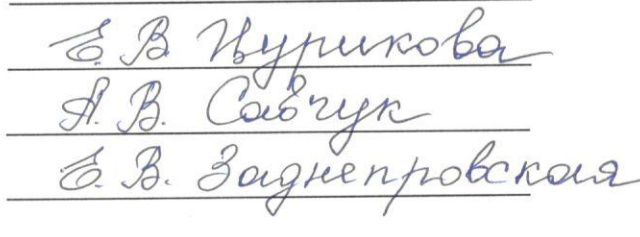 Е. В. Цурикова
А. В. Савчук
Е. В. Заднепровская